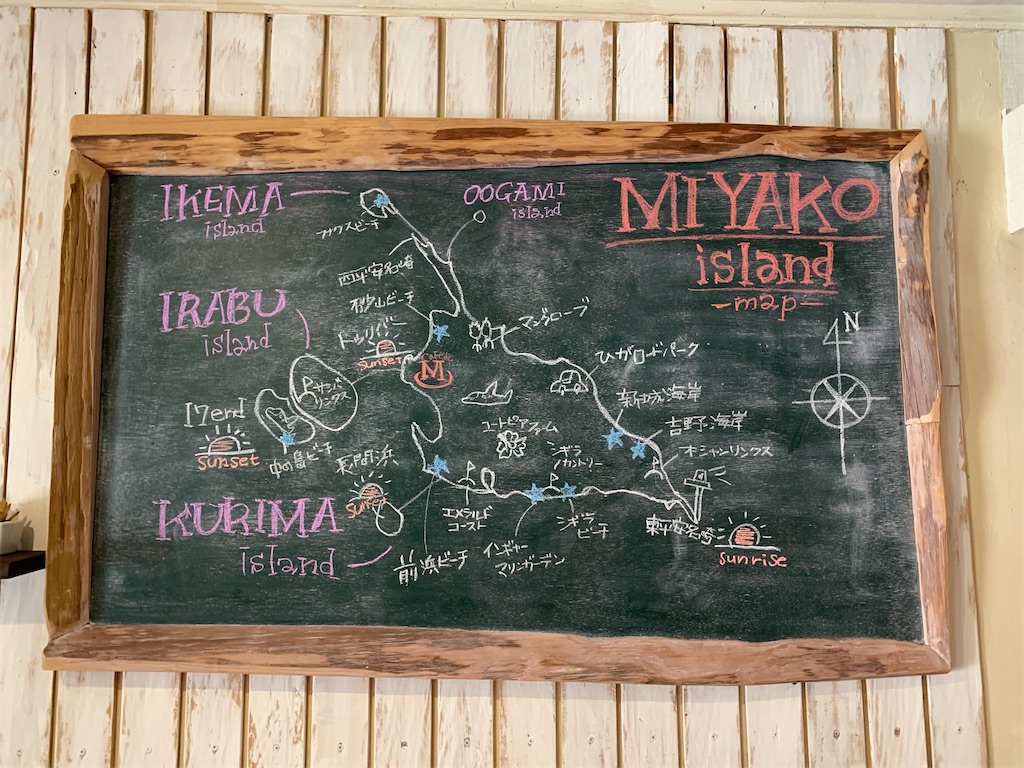 IKEMA
island
フナクスビーチ
OOGAMI
island
MIYAKO
island
map
西平安名崎
砂山ビーチ
IRABU
island
トゥリバー
sunset
M
マングローブ
N
ひがロードパーク
サシバ
リンクス
新城海岸
吉野海岸
17end
sunset
中の島ビーチ
コートピアファーム
シギラ
カントリー
オーシャンリンクス
長間浜
sunset
KURIMA
island
エメラルド
コースト
シギラ
ビーチ
東平安名崎
sunrise
前浜ビーチ
インギャー
マリンガーデン